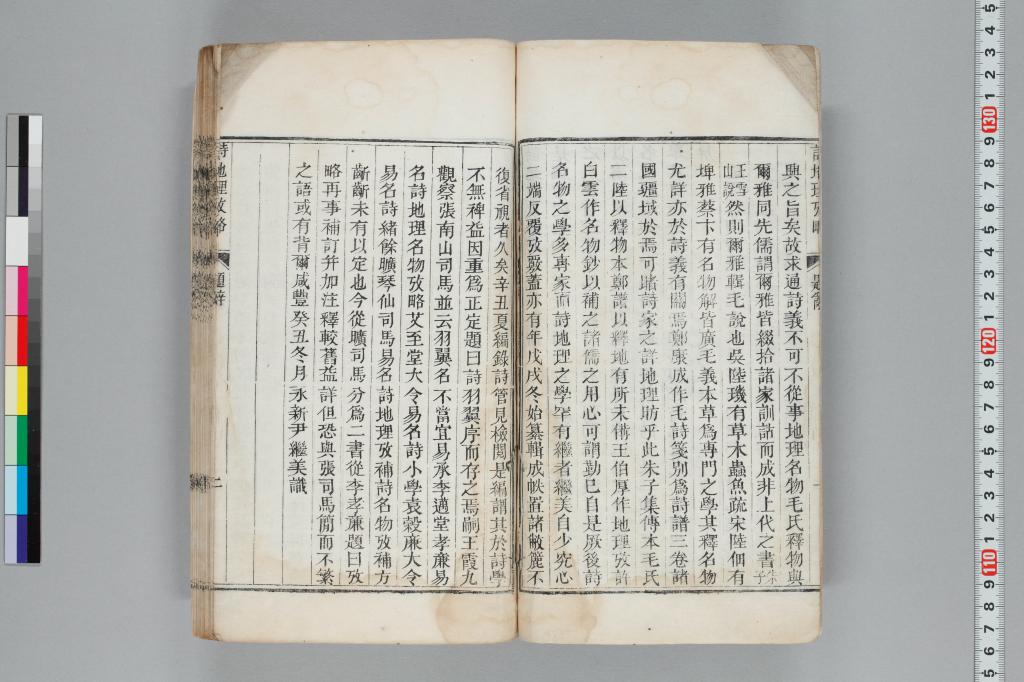 詩地理攷略
題辭
興之旨矣故求通詩義不可不從事地理名物毛氏釋物與
爾雅同先儒謂爾雅皆綴拾諸家訓詁而成非上代之書朱子
王雪山說然則爾雅輯毛說也吳陸璣有草木蟲魚疏宋陸佃有
埤雅蔡卞有名物解皆廣毛義本草爲專門之學其釋名物
尤詳亦於詩義有關焉鄭康成作毛詩箋別爲詩譜三卷諸
國疆域於焉可睹詩家之詳地理昉乎此朱子集傳本毛氏
二陸以釋物本鄭譜以釋地有所未備王伯厚作地理攷許
白雲作名物鈔以補之諸儒之用心可謂勤已自是厥後詩
名物之學多專家而詩地理之學罕有繼者繼美自少究心
二端反覆攷覈蓋亦有年戊戌冬始纂輯成帙置諸敝簏不
復省視者久矣辛丑夏編錄詩管見檢閱是編謂其於詩學
不無裨益因重爲正定題曰詩羽翼序而存之焉嗣王霞九
觀察張南山司馬並云羽翼名不當宜易承李邁堂孝廉易
名詩地理名物攷略艾至堂大令易名詩小學袁榖廉大令
易名詩緒餘曠琴仙司馬易名詩地理攷補詩名物攷補方
齗齗未有以定也今從曠司馬分爲二書從李孝廉題曰攷
略再事補訂并加注釋較舊益詳但恐與張司馬簡而不繁
之語或有背爾咸豐癸丑冬月永新尹繼美識
詩地理攷略
題辭
二